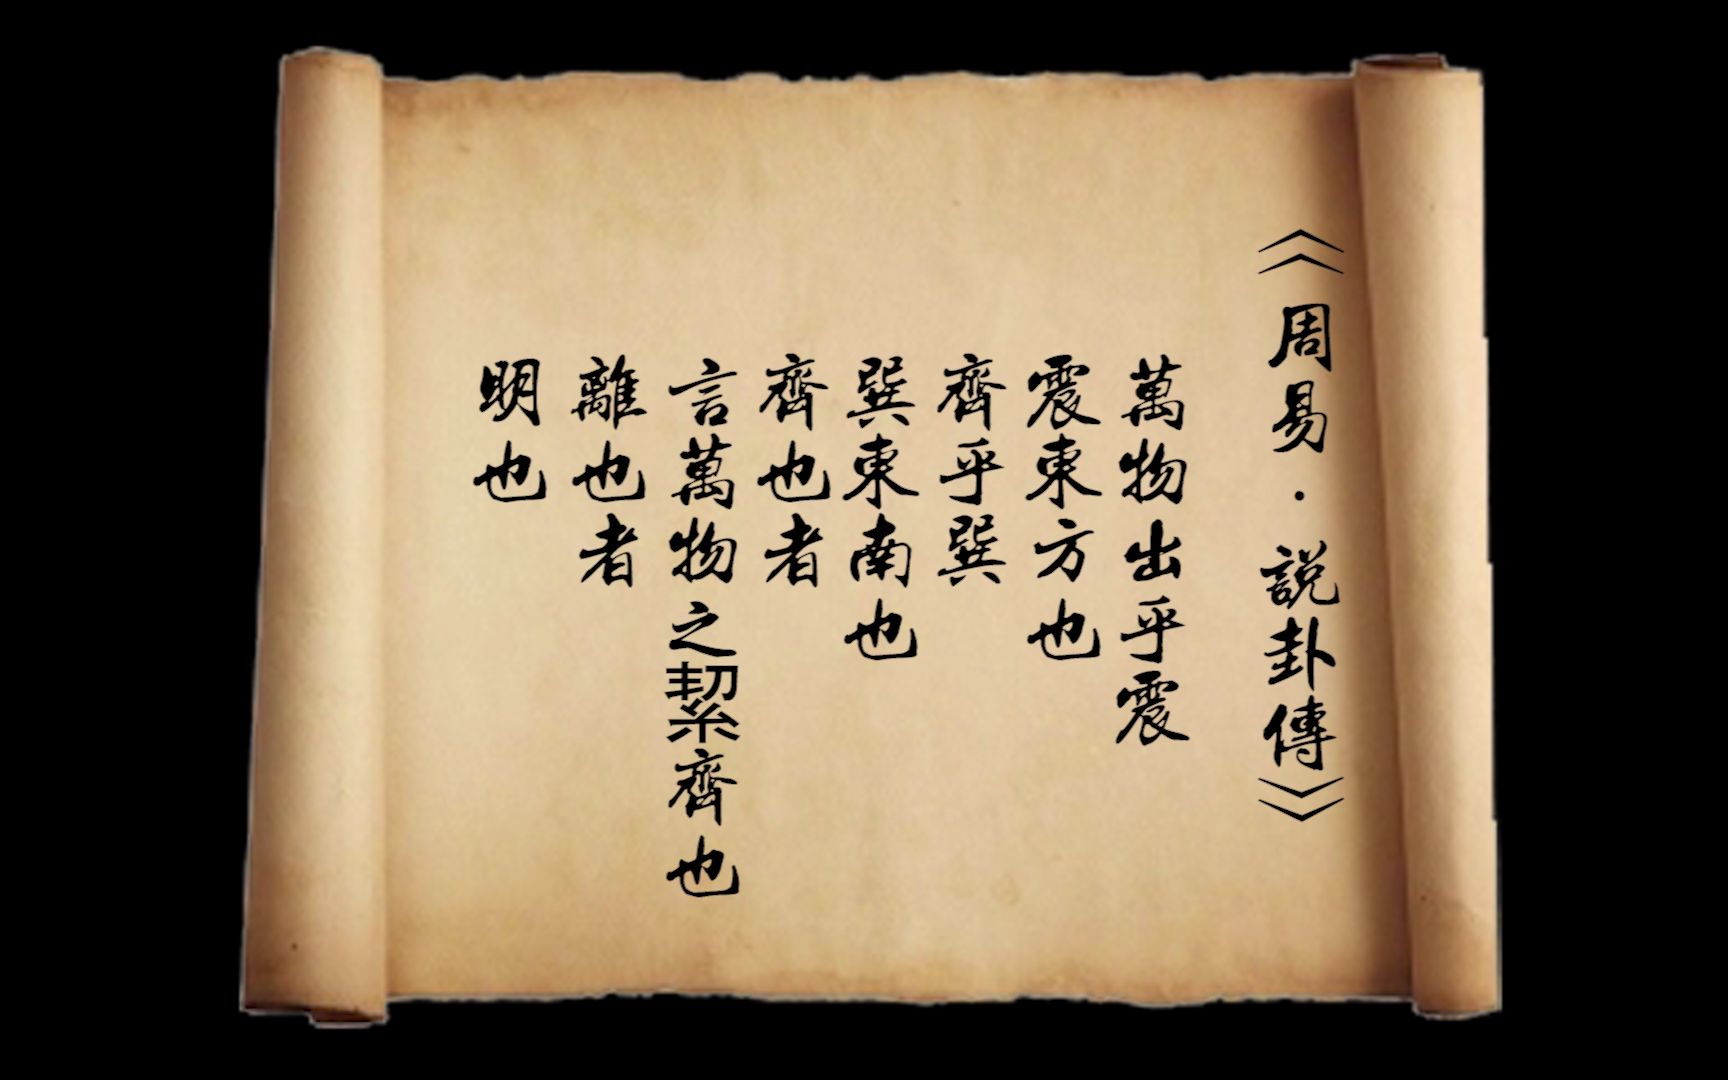 《周易·説卦傳》
萬物出乎震
震東方也
齊乎巽
巽東南也
齊也者
言萬物之絜齊也
離也者
明也